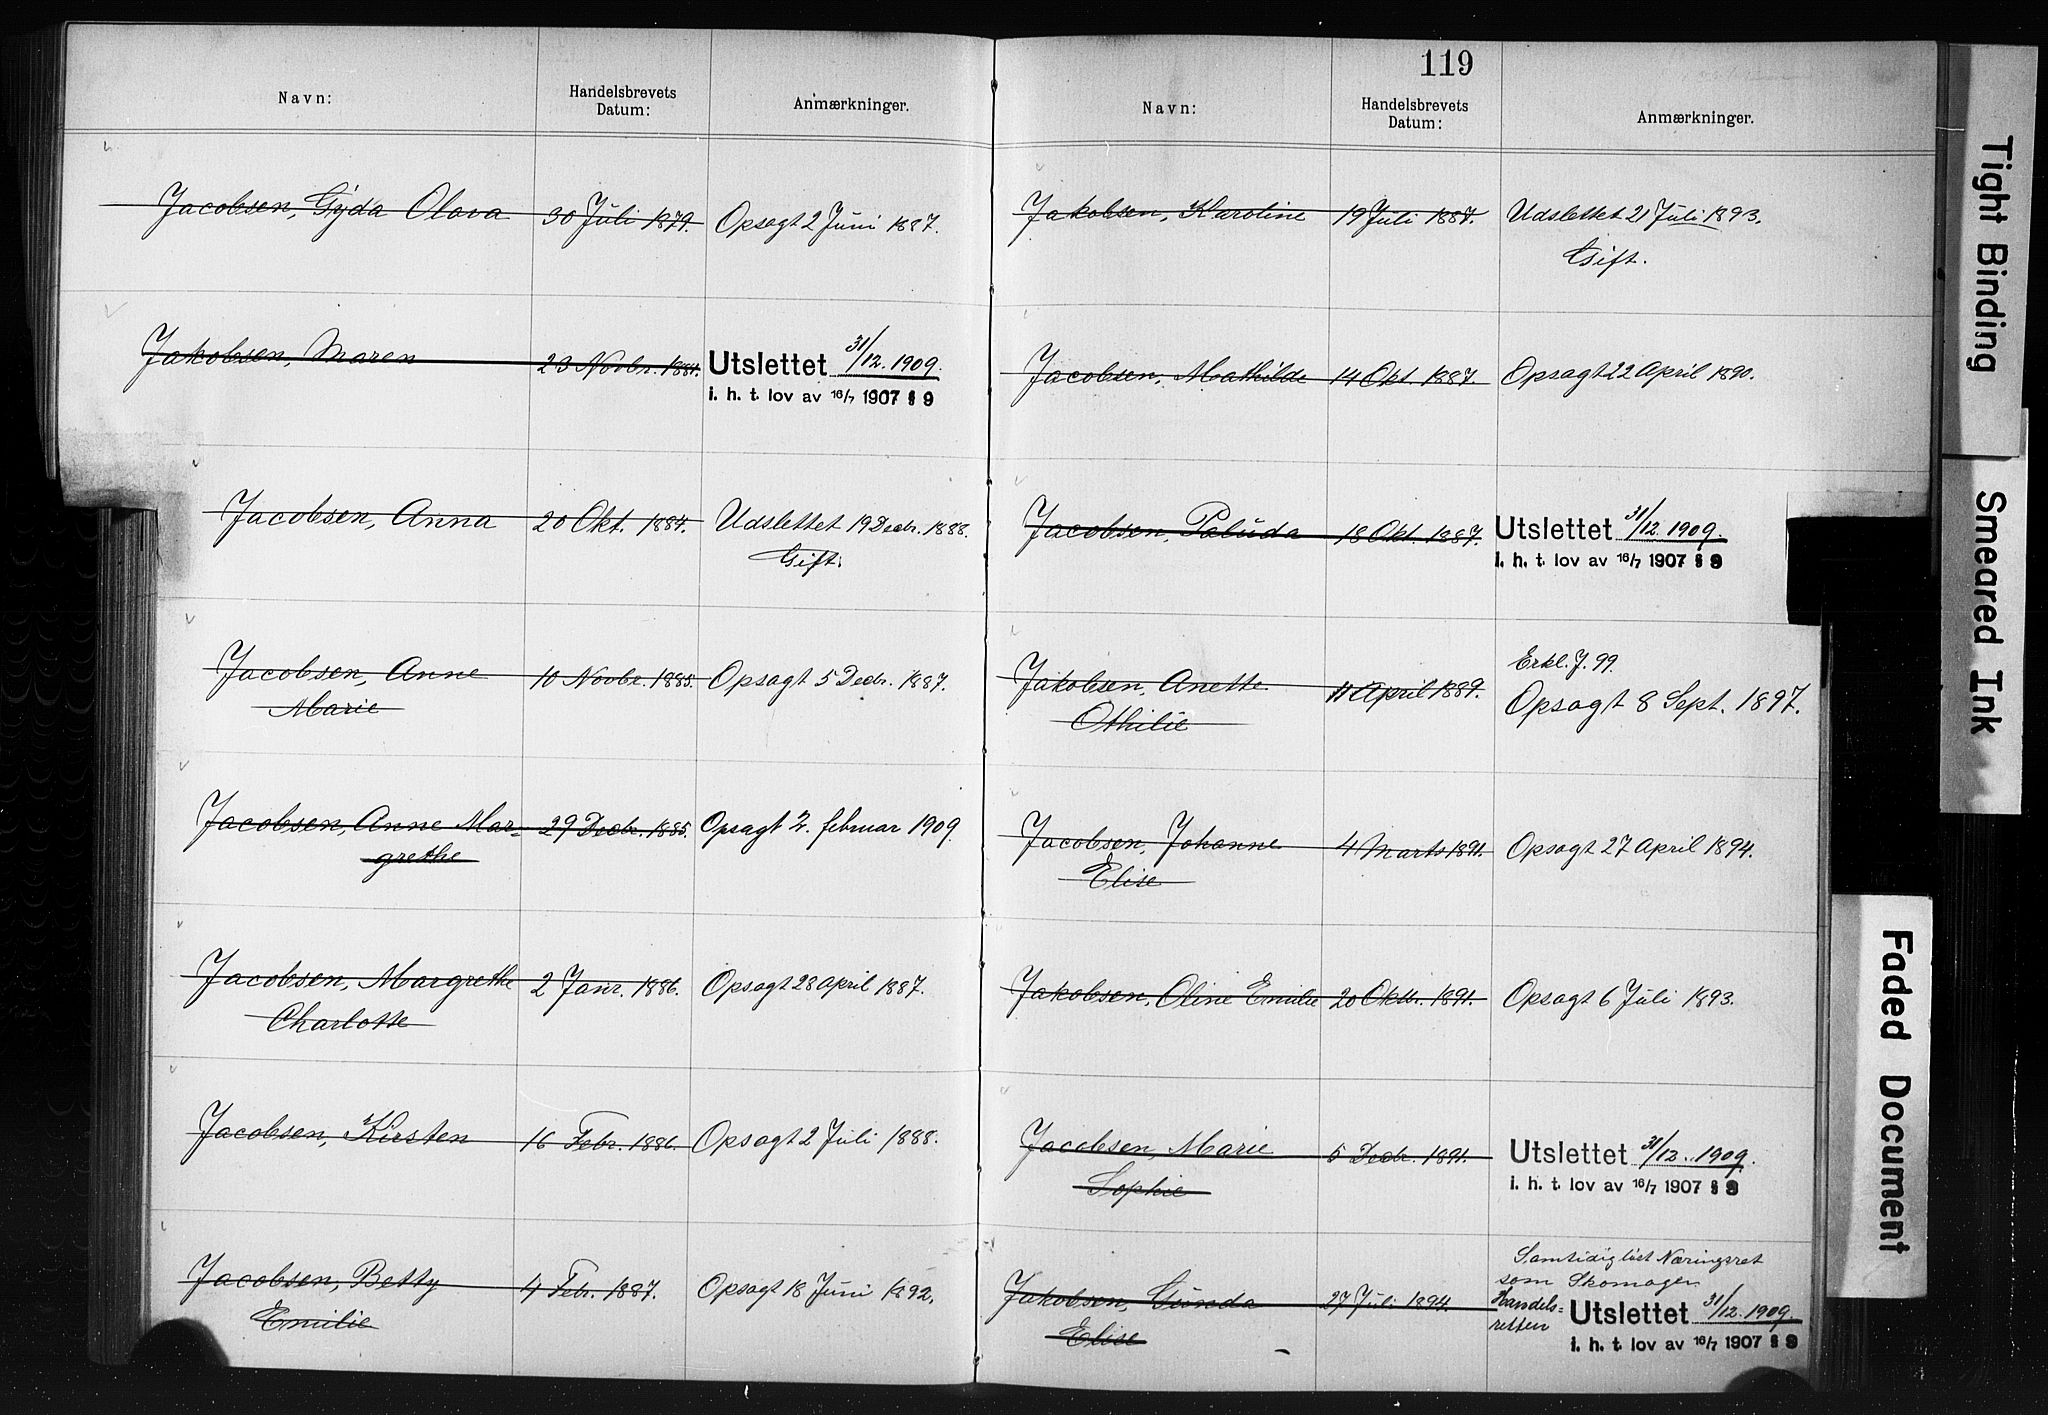 Navn:
Handelsbrevets
Datum:
Anmærkninger.
Jacobsen, Gyda Olava 30 Juli 1879. Opsagt 2 Juni 1887.
Jakobsen, Maren 23 Novbr. 1881. Utslettet 31/12. 1909.
i. h. t. lov av 16/7 1907 § 9
Jacobsen, Anna 20 Okt. 1884. Udslettet 19 Decbr. 1888.
Gift.
Jacobsen, Anne 10 Novbr. 1885. Opsagt 5 Decbr. 1887.
Marie
Jacobsen, Anne Mar- 29 Decbr. 1885. Opsagt 2. februar 1909.
grethe
Jacobsen, Margrethe 2 Janr. 1886. Opsagt 28 April 1887.
Charlotte
Jacobsen, Kirsten 16 Febr. 1886. Opsagt 2 Juli 1888.
Jacobsen, Betty 4 Febr. 1887. Opsagt 18 Juni 1892.
Emilie
119
Navn:
Handelsbrevets
Datum:
Anmærkninger.
Jakobsen, Karoline 19 Juli 1887. Udslettet 21 Juli 1893.
Gift.
Jacobsen, Mathilde 14 Okt. 1887. Opsagt 22 April 1890.
Jacobsen, Paluda 18 Okt. 1887. Utslettet 31/12. 1909.
i. h. t. lov av 16/7 1907 § 9
Erkl. J. 99.
Jakobsen, Anette 11 April 1889. Opsagt 8 Sept. 1897.
Othilie
Jacobsen, Johanne 4 Marts 1891. Opsagt 27 April 1894.
Elise
Jakobsen, Oline Emilie 20 Oktbr. 1891. Opsagt 6 Juli 1893.
Jacobsen, Marie 5 Decbr. 1891. Utslettet 31/12. 1909.
Sophie
i. h. t. lov av 16/7 1907 § 9
Samtidig løst Næringsret
som Skomager
Jakobsen, Gunda 27 Juli 1894. Handels-
retten Utslettet 31/12. 1909.
Elise
i. h. t. lov av 16/7 1907 § 9
Tight Binding
Smeared Ink
Faded Document